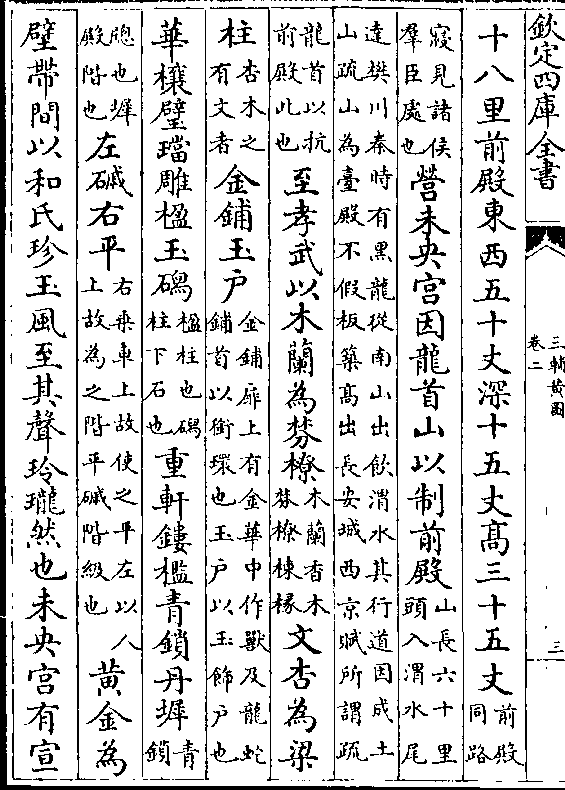 欽定四庫全書
三輔黃圖
卷二
三
十八里前殿東西五十丈深十五丈高三十五丈前殿同路
寢見諸侯羣臣處也營未央宮因龍首山以制前殿山長六十里頭入渭水尾
達樊川秦時有黑龍從南山出飲渭水其行道因成土
山疏山為臺殿不假板築高出長安城西京賦所謂疏
龍首以抗前殿此也至孝武以木蘭為棼橑木蘭香木棼橑棟椽文杏為梁
柱杏木之有文者金鋪玉户金鋪扉上有金華中作獸及龍蛇鋪首以銜環也玉户以玉飾户也
華榱璧璫雕楹玉磶楹柱也磶柱下石也重軒鏤檻青鎖丹墀青鎖
牕也墀殿階也左磩右平右乘車上故使之平左以人上故為之階平磩階級也黃金為
壁帶間以和氏珍玉風至其聲玲瓏然也未央宮有宣